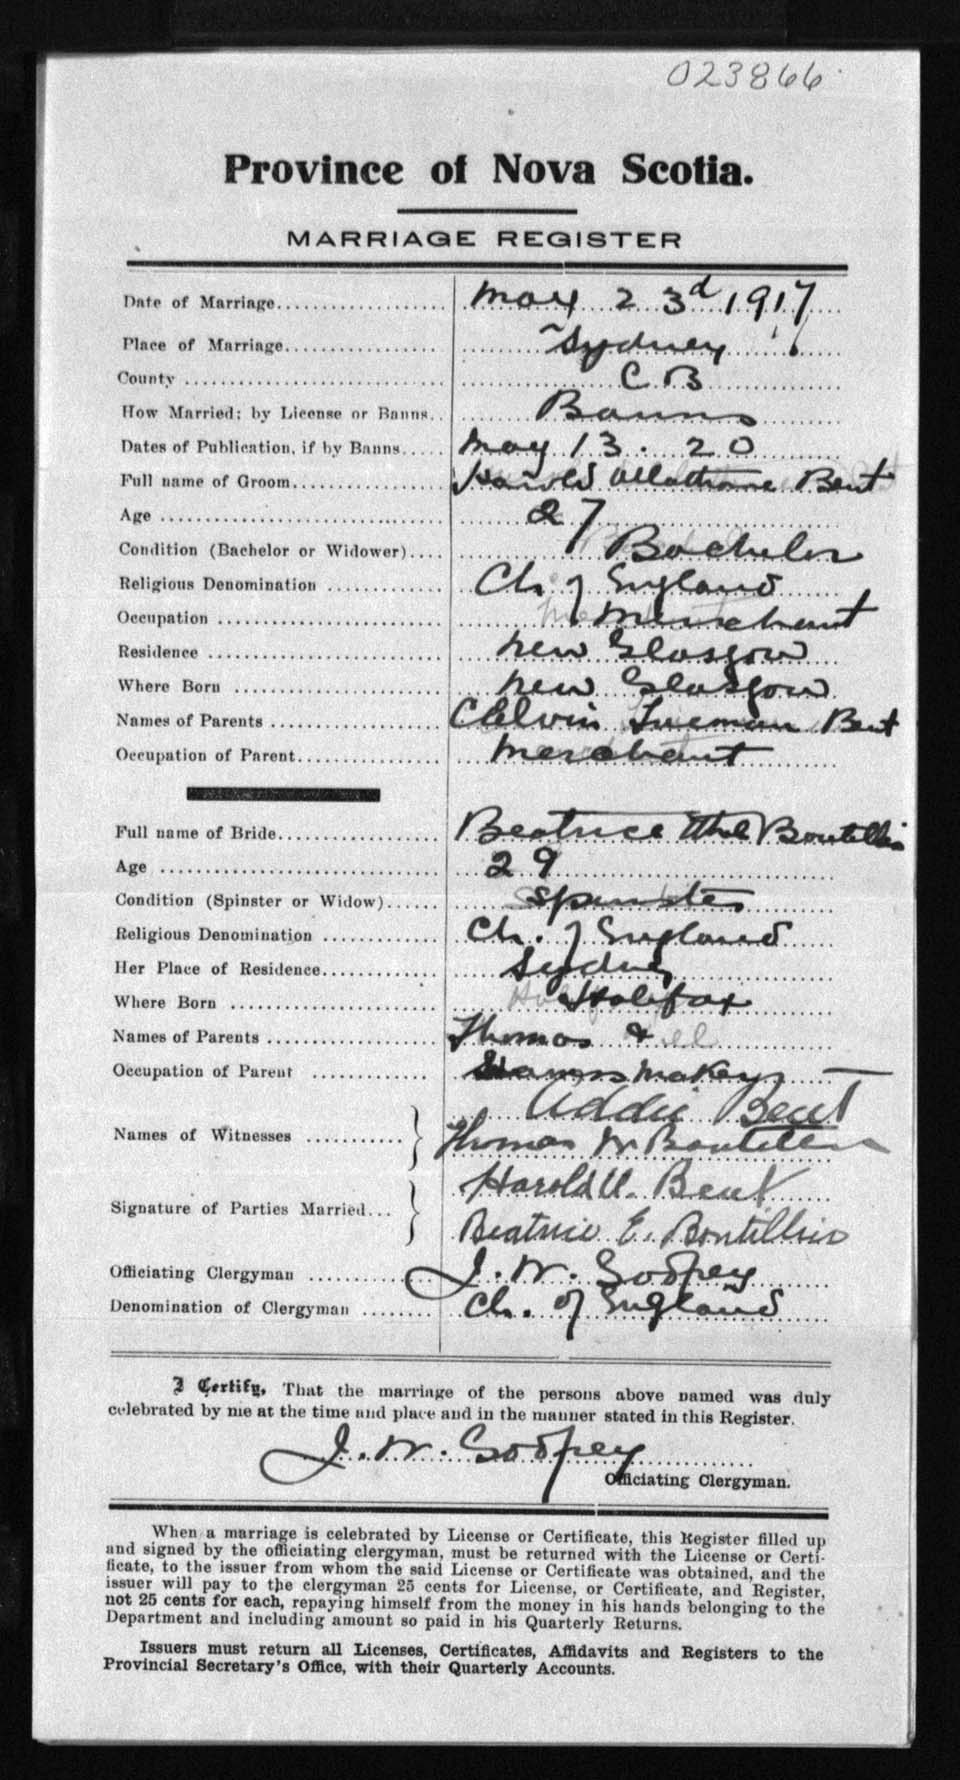 023866
Province of Nova Scotia.
MARRIAGE REGISTER
Date of Marriage.................... May 23d 1917
Place of Marriage.................. Sydney
County .............................. C B
How Married; by License or Banns.. Banns
Dates of Publication, if by Banns..... May 13. 20
Full name of Groom.................. Harold Bent
Age .................................. 27
Condition (Bachelor or Widower).... Bachelor
Religious Denomination ............. Ch. of England
Occupation ........................... Merchant
Residence ............................ New Glasgow
Where Born ......................... New Glasgow
Names of Parents .................... Bent
Occupation of Parent................. Merchant
Full name of Bride.................... Beatrice Boutillier
Age .................................. 29
Condition (Spinster or Widow)...... Spinster
Religious Denomination ............. Ch. of England
Her Place of Residence............... Sydney
Where Born ......................... Halifax
Names of Parents .................... Thomas &
Occupation of Parent ............... Harness Maker
Addie Bent
Names of Witnesses ........... Thomas W Boutillier
Harold U. Bent
Signature of Parties Married...
Beatrice E. Boutillier
Officiating Clergyman ............... J. W. Godfrey
Denomination of Clergyman ........ Ch. of England
I Certify, That the marriage of the persons above named was duly
celebrated by me at the time and place and in the manner stated in this Register.
J. W. Godfrey
Officiating Clergyman.
When a marriage is celebrated by License or Certificate, this Register filled up
and signed by the officiating clergyman, must be returned with the License or Certi-
ficate, to the issuer from whom the said License or Certificate was obtained, and the
issuer will pay to the clergyman 25 cents for License, or Certificate, and Register,
not 25 cents for each, repaying himself from the money in his hands belonging to the
Department and including amount so paid in his Quarterly Returns.
Issuers must return all Licenses, Certificates, Affidavits and Registers to the
Provincial Secretary's Office, with their Quarterly Accounts.